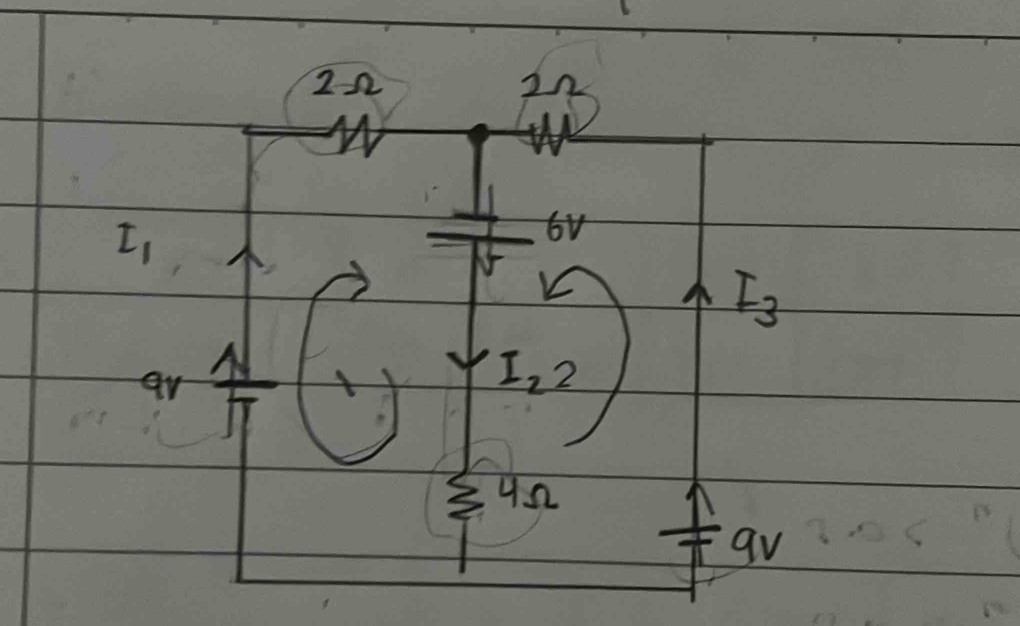 2Ω 2Ω
6V
I₁
I₃
9V
I₂ 2
4Ω
9V